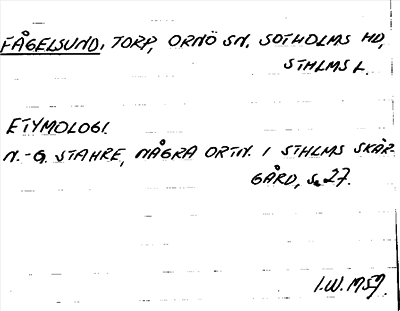 FÅGELSUND, TORP, ORNÖ SN, SOTHOLMS HD,
STHLMS L.
ETYMOLOGI.
N.-G. STAHRE, NÅGRA ORTN. I STHLMS SKÄR-
GÅRD, S. 27.
I.W. 1957.